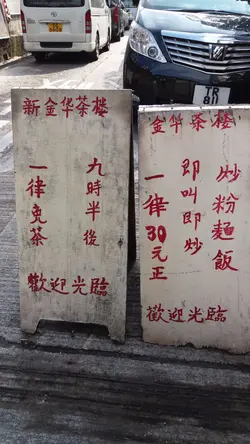 新金华茶楼
九時半後
一律免茶
歡迎光臨
金华茶楼
炒粉麵飯
即叫即炒
一律30元正
歡迎光臨
TR